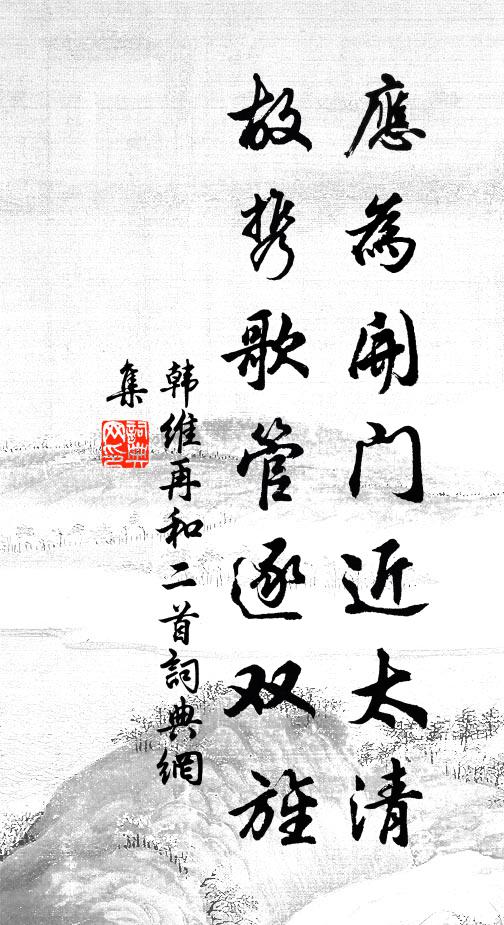 應為開门近太清
故携歌管逐双旌
韩維再和二首詞典網
集
詞典網